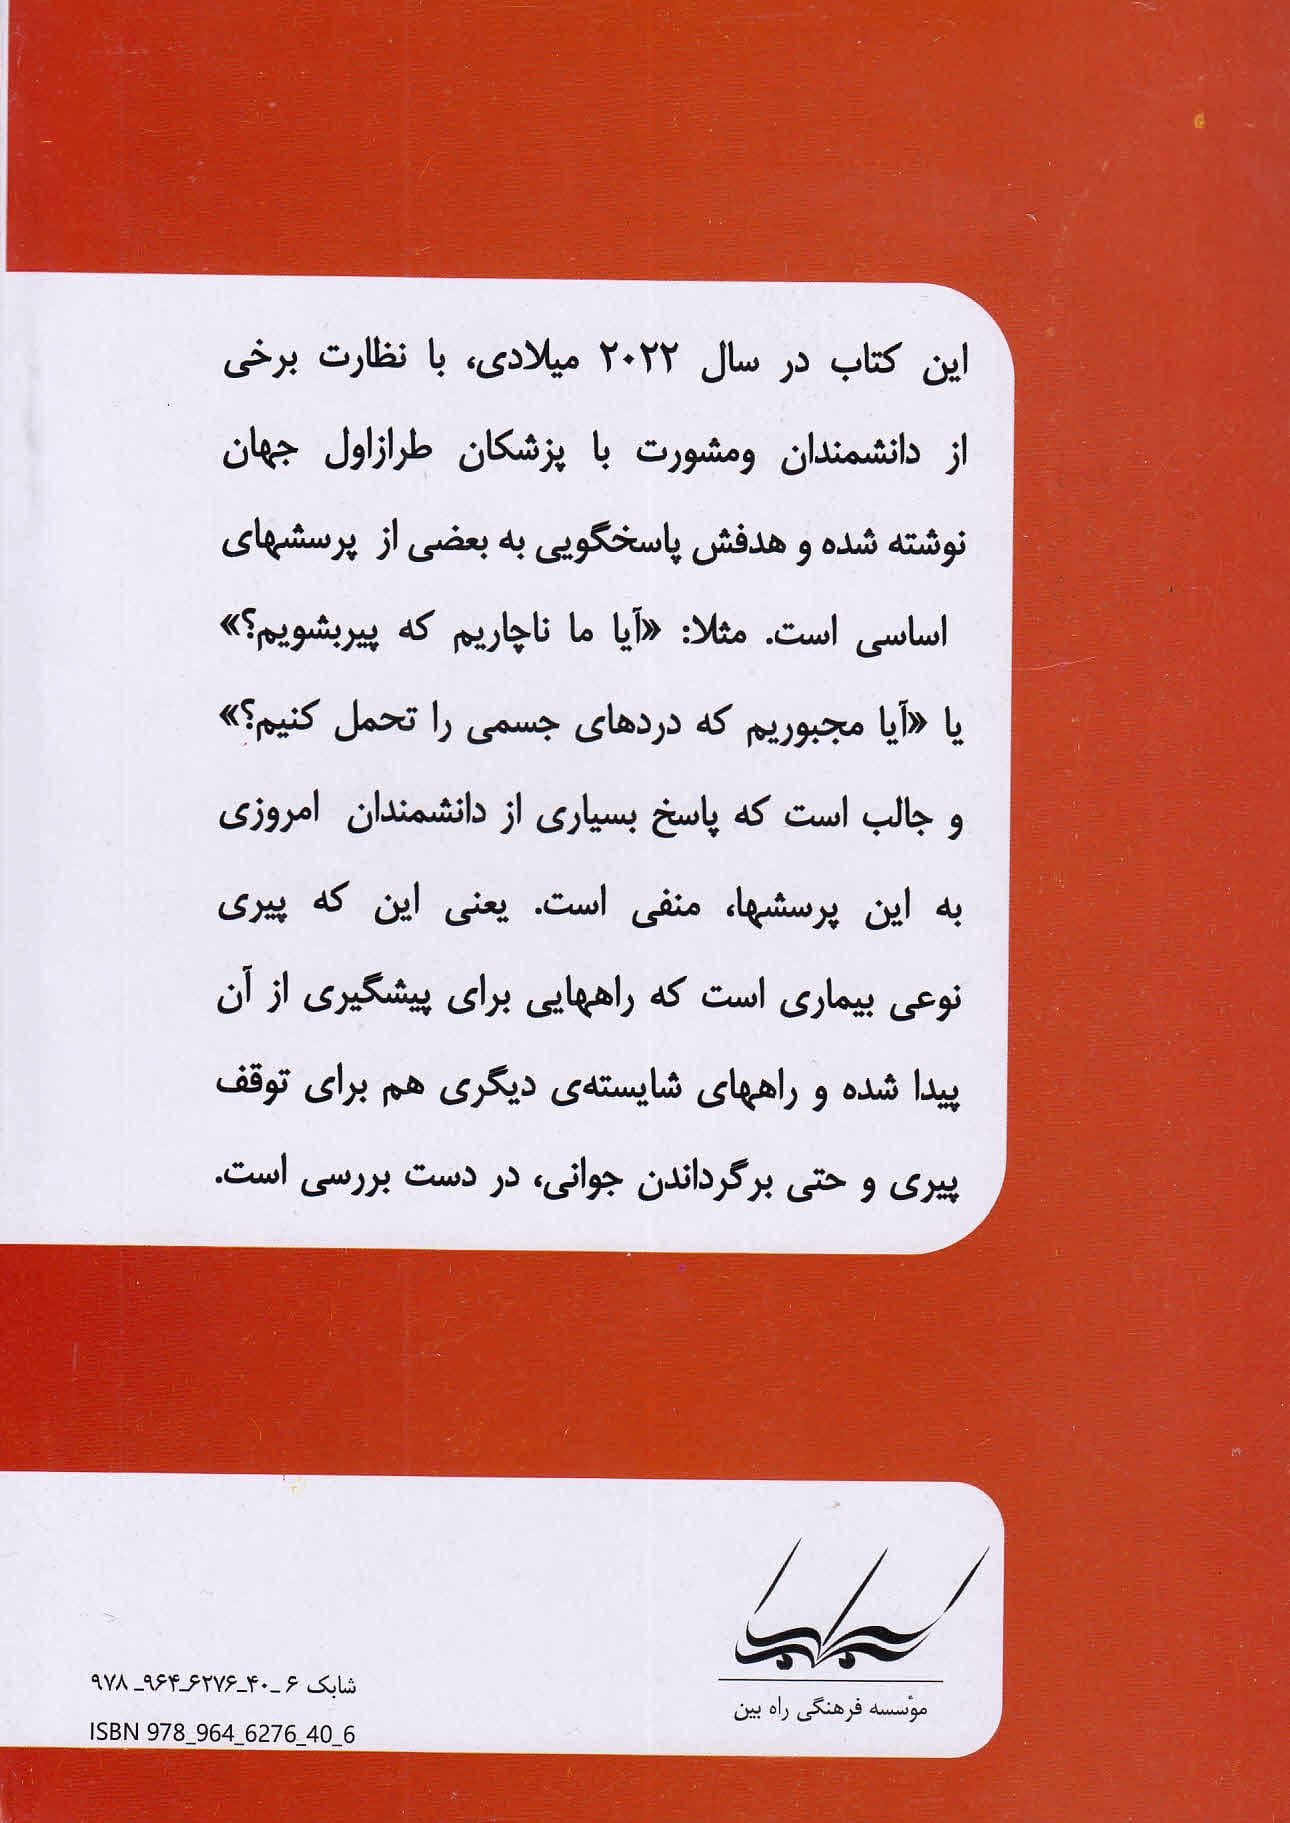 این کتاب در سال ۲۰۲۲ میلادی، با نظارت برخی
از دانشمندان ومشورت با پزشکان طرازاول جهان
نوشته شده و هدفش پاسخگویی به بعضی از پرسشهای
اساسی است. مثلا: «آیا ما ناچاریم که پیربشویم؟»
یا «آیا مجبوریم که دردهای جسمی را تحمل کنیم؟»
و جالب است که پاسخ بسیاری از دانشمندان امروزی
به این پرسشها، منفی است. یعنی این که پیری
نوعی بیماری است که راههایی برای پیشگیری از آن
پیدا شده و راههای شایسته‌ی دیگری هم برای توقف
پیری و حتی برگرداندن جوانی، در دست بررسی است.
مؤسسه فرهنگی راه بین
شابک ۶ _۴۰_۶۲۷۶_۹۶۴_ ۹۷۸
ISBN 978_964_6276_40_6